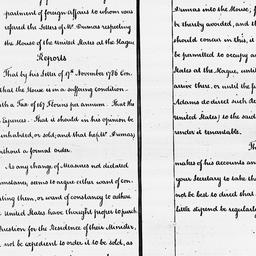 partment of foreign Affairs to whom was
referred the Letters of Mr. Dumas respecting
the House of the United States at the Hague
Reports
That by his Letter of 17th November 1786 Con
that the House is in a suffering condition
with a Tax of 167 Florins per annum. That the
Expences. That it should in his opinion be
inhabited, or sold, and that he Mr. Dumas,
without a formal order.
As any change of Measures not dictated
cumstance, seems to argue either want of con
ting them, or want of constancy to adhere
United States have thought proper to purch
Question for the Residence of their Minister,
not be expedient to order it to be sold, as
Dumas into the House,
be thereby avoided, and th
should concur in this, it
be permitted to occupy a
States at the Hague, until
arrive there, or until the f
Adams do direct such de
United States) to the said
under it tenantable.
Th
makes of his accounts an
your Secretary to take th
not be best to direct that
little stipend be regularly